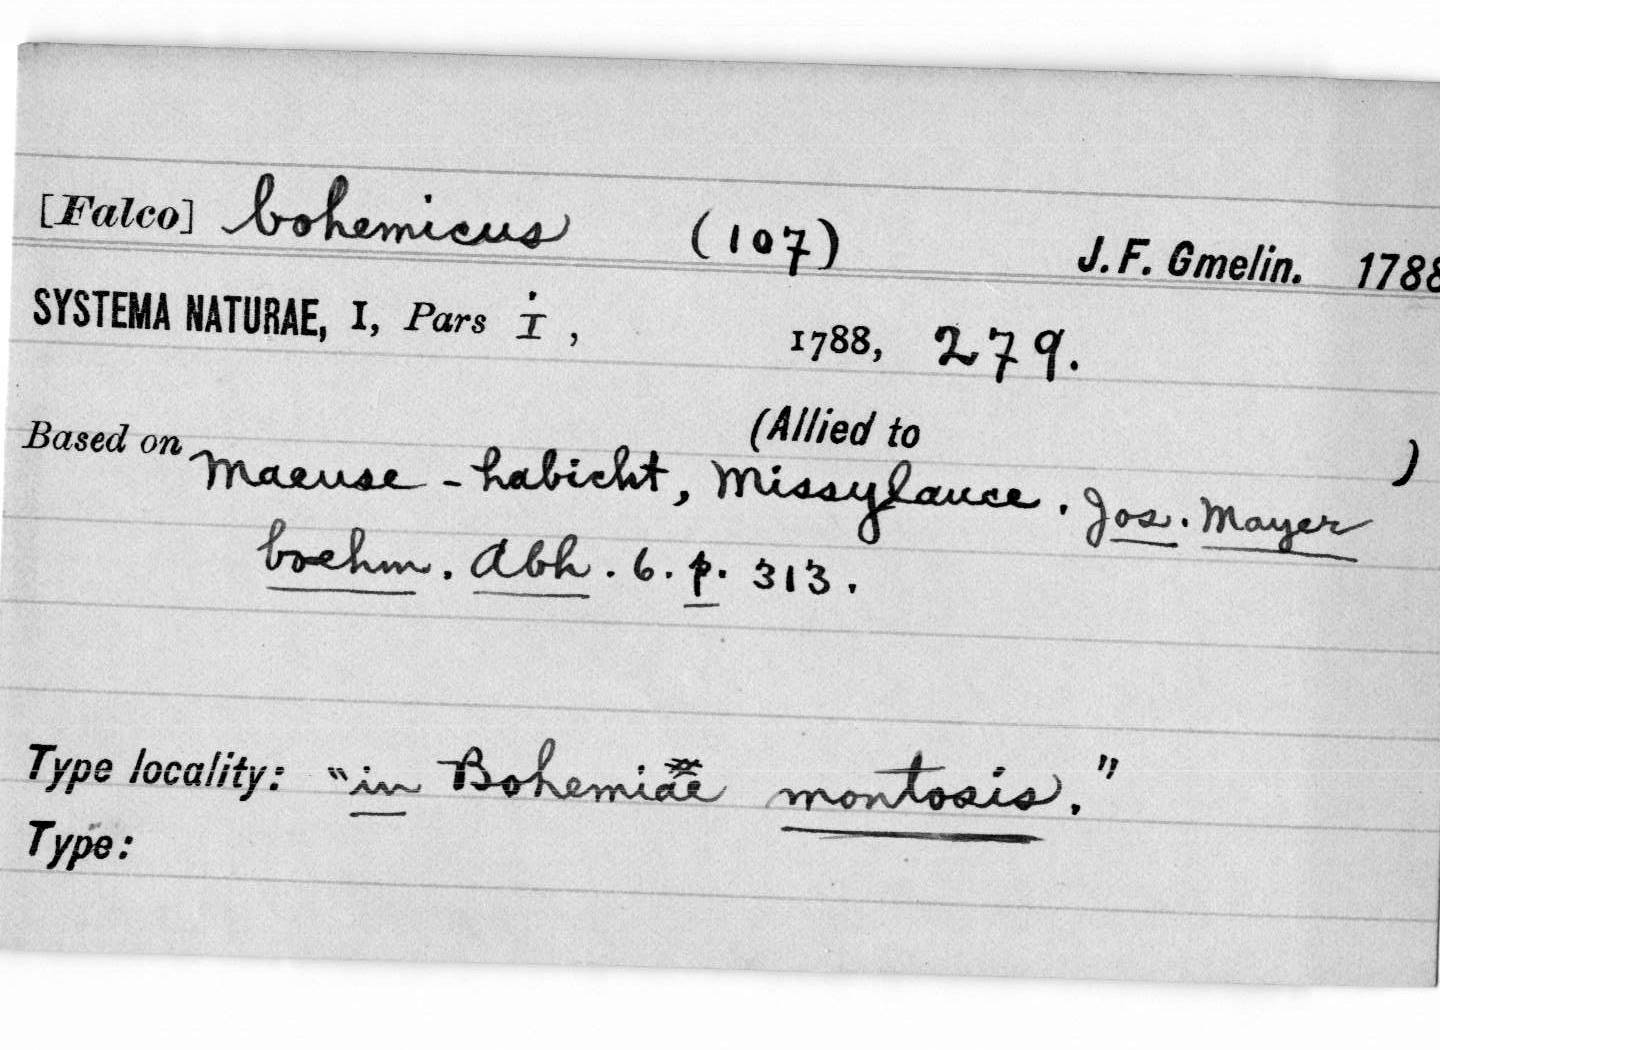 [Falco] bohemicus (107) J. F. Gmelin. 1788
SYSTEMA NATURAE, I, Pars I, 1788, 279.
(Allied to )
Based on Maeuse-habicht, Missylauce. Jos. Mayer
boehm. Abh. 6. p. 313.
Type locality: "in Bohemiae montosis."
Type: